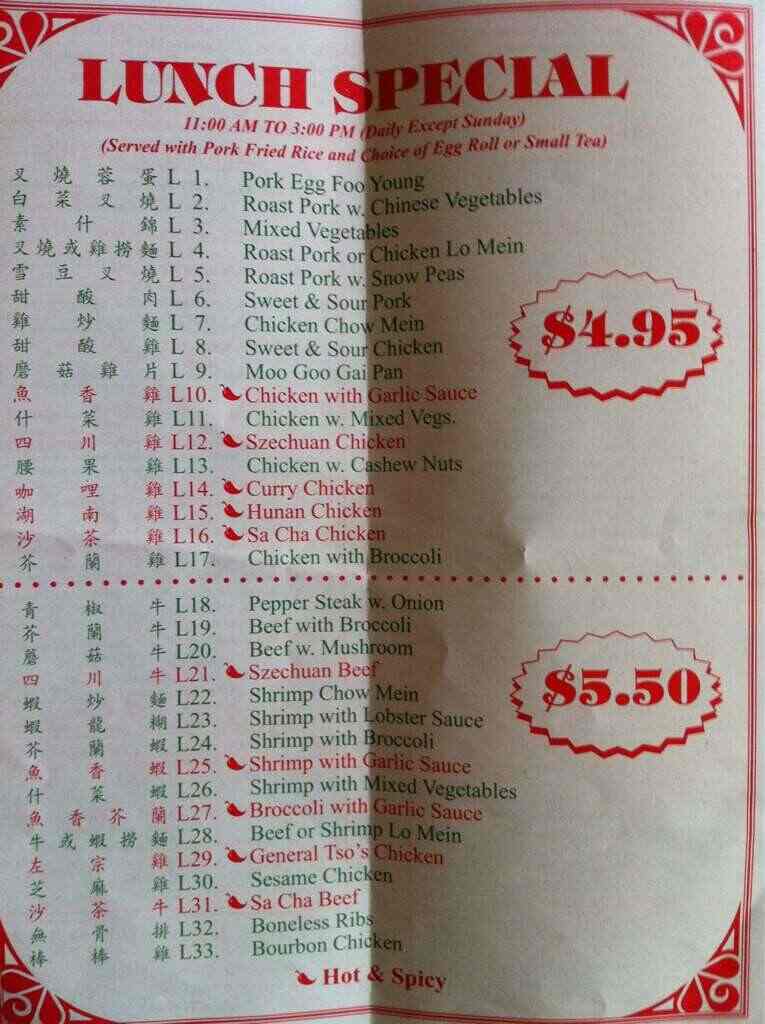 LUNCH SPECIAL
11:00 AM TO 3:00 PM (Daily Except Sunday)
(Served with Pork Fried Rice and Choice of Egg Roll or Small Tea)
叉燒蓉蛋 L 1. Pork Egg Foo Young
白菜叉燒 L 2. Roast Pork w. Chinese Vegetables
素什錦 L 3. Mixed Vegetables
叉燒或雞撈麵 L 4. Roast Pork or Chicken Lo Mein
雪豆叉燒 L 5. Roast Pork w. Snow Peas
甜酸肉 L 6. Sweet & Sour Pork
雞炒麵 L 7. Chicken Chow Mein
甜酸雞 L 8. Sweet & Sour Chicken
磨菇雞片 L 9. Moo Goo Gai Pan
魚香雞 L10. Chicken with Garlic Sauce
什菜雞 L11. Chicken w. Mixed Vegs.
四川雞 L12. Szechuan Chicken
腰果雞 L13. Chicken w. Cashew Nuts
咖哩雞 L14. Curry Chicken
湖南雞 L15. Hunan Chicken
沙茶雞 L16. Sa Cha Chicken
芥蘭雞 L17. Chicken with Broccoli
$4.95
青椒牛 L18. Pepper Steak w. Onion
芥蘭牛 L19. Beef with Broccoli
蘑菇牛 L20. Beef w. Mushroom
四川牛 L21. Szechuan Beef
蝦炒麵 L22. Shrimp Chow Mein
蝦龍糊 L23. Shrimp with Lobster Sauce
芥蘭蝦 L24. Shrimp with Broccoli
魚香蝦 L25. Shrimp with Garlic Sauce
什菜蝦 L26. Shrimp with Mixed Vegetables
魚香芥蘭 L27. Broccoli with Garlic Sauce
牛或蝦撈麵 L28. Beef or Shrimp Lo Mein
左宗雞 L29. General Tso's Chicken
芝麻雞 L30. Sesame Chicken
沙茶牛 L31. Sa Cha Beef
無骨排 L32. Boneless Ribs
棒棒雞 L33. Bourbon Chicken
$5.50
Hot & Spicy